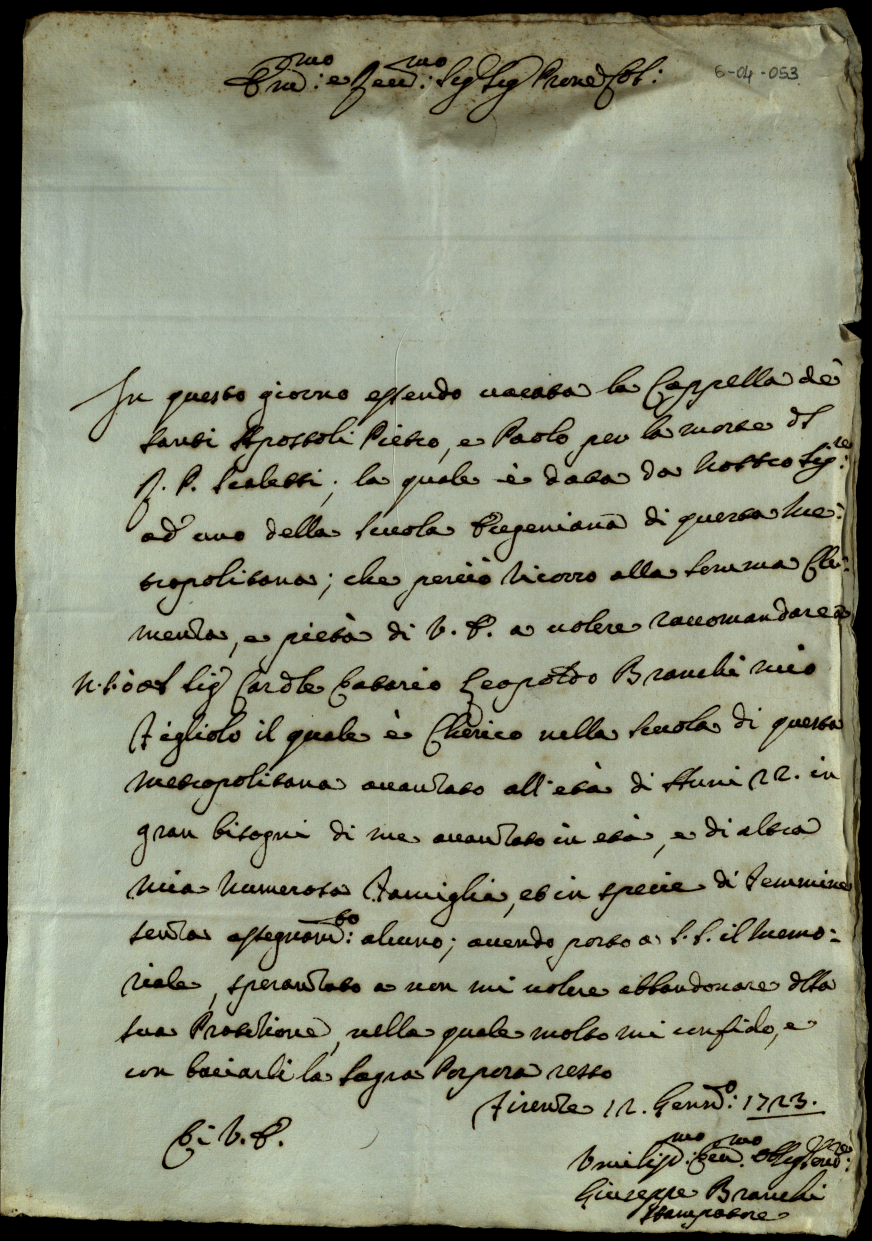 Em.mo: e Rev.mo: Sig Sig Prone Col:
6-04-053
In questo giorno essendo vacata la Cappella de
Santi Apostoli Pietro, e Paolo per la morte del
R. P. Scaletti; la quale è data da Nostro Sig.re:
ad uno della Scuola Eugeniana di questa Me:
tropolitana; che perciò ricorro alla somma Cle:
menza, e pietà di V. E. a volere raccomandare a
N. S. ò al Sig Cardle Datario Leopoldo Branchi mio
Figliolo il quale è Cherico nella Scuola di questa
Metropolitana avanzato all'età di Anni 22. in
gran bisogni di me avanzato in età, e di altra
mia numerosa Famiglia, et in specie di Femmine
senza assegnam.to: alcuno; avendo porto a S. S. il Memo:
riale, speranzato a non mi volere abbandonare della
sua Protezione, nella quale molto mi confido, e
con baciarli la Sagra Porpora resto
Firenze 12. Genn.o: 1723.
Di V. E.
Umiliss.mo: Dev.mo: Obblig Serv.re:
Giuseppe Branchi
Stampatore